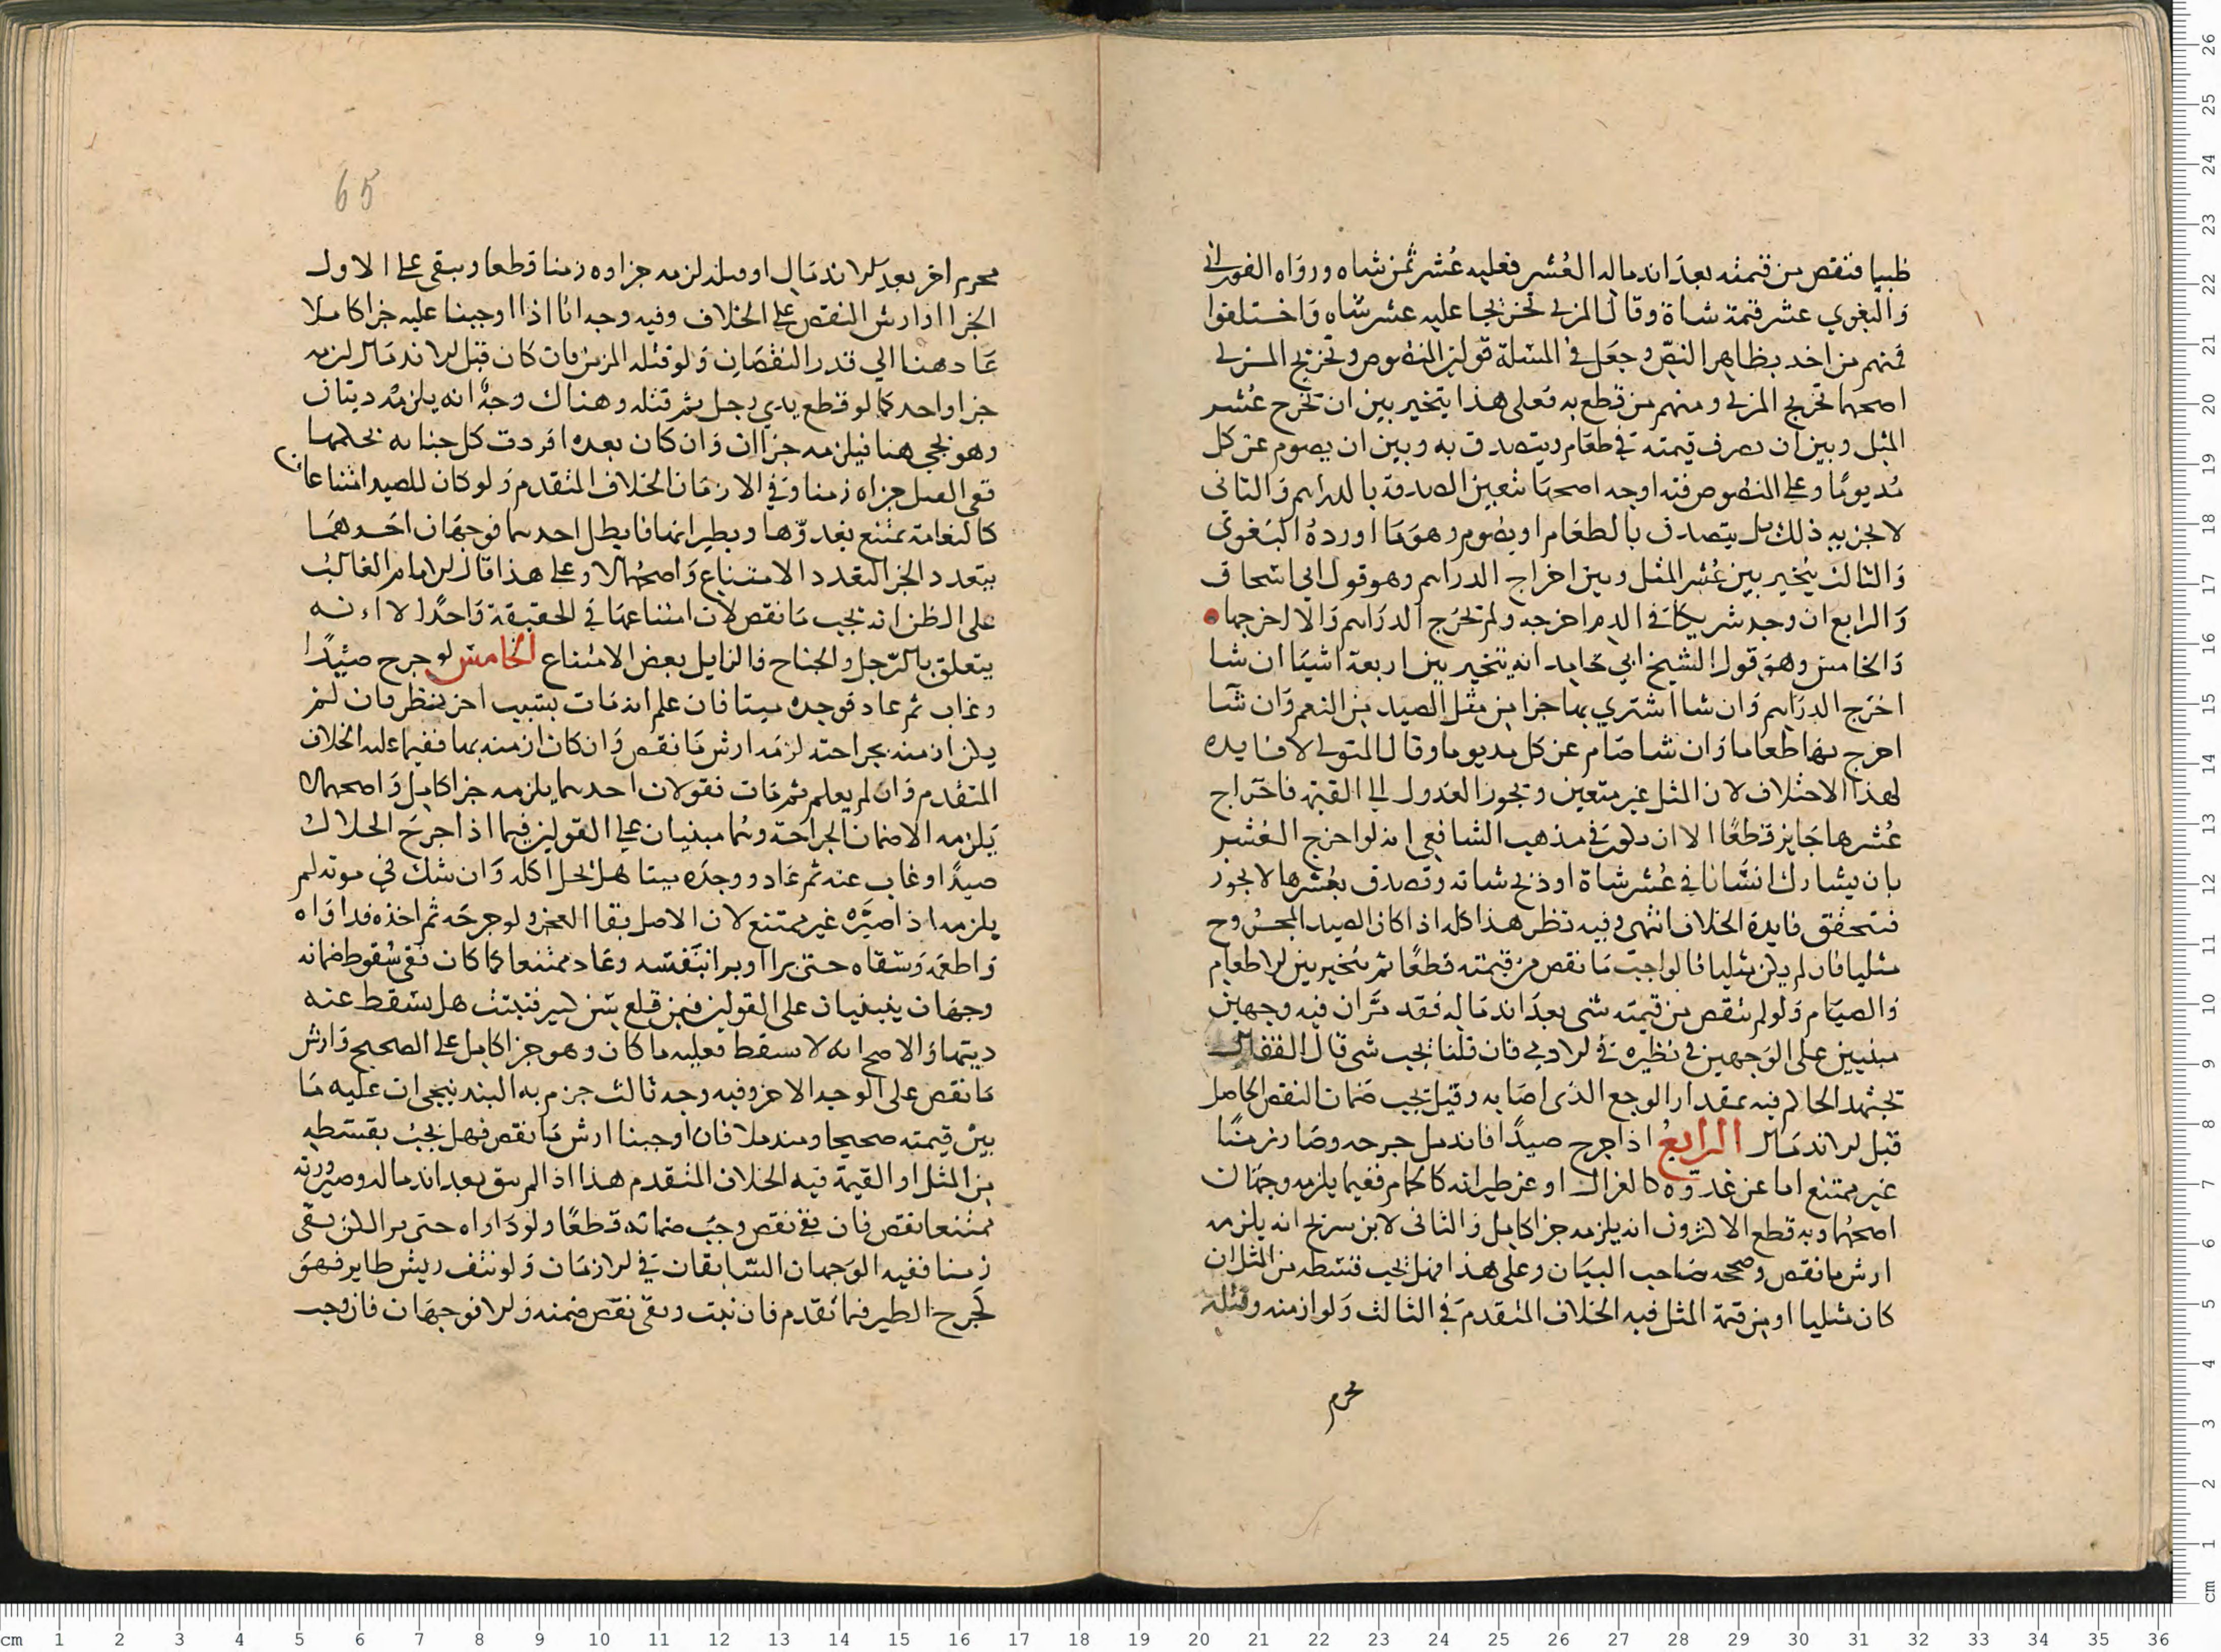 ظبيا فنقص من قيمته بعد اندماله العُشر فعليه عُشر ثمن شاه ورواه الفوراني
والبغوي عشر قيمة شاة وقال المزني تخريجا عليه عشر شاه واختلفوا
فمنهم من اخد بظاهر النص وجعل في المسئلة قولين المنصوص وتخريج المزني
اصحهما تخريج المزني ومنهم من قطع به فعلى هذا يتخير بين ان يخرج عُشر
المثل وبين ان يصرف قيمته في طعام ويتصدق به وبين ان يصوم عن كل
مُد يومًا وعلى المنصوص فيه اوجه اصحها تتعين الصدقة بالدراهم والثانى
لا يجزيه ذلك بل يتصدق بالطعام او يصوم وهو ما اورده البغوي
والثالث يُخير بين عُشر المثل وبين اخراج الدراهم وهو قول ابي اسحاق
والرابع ان وجد شريكا في الدم اخرجه ولم يخرج الدراهم والا اخرجها
والخامس وهو قول الشيخ ابي حامد انه يتخير بين اربعة اشيا ان شا
اخرج الدراهم وان شا اشتري بها جزا من مثل الصيد من النعم وان شا
اخرج بها طعاما وان شا صام عن كل مد يوما وقال المتولي لا فايده
لهذا الاختلاف لان المثل غير متعين ويجوز العدول الي القيمة فاخراج
عُشرها جايز قطعًا الا ان يكون في مذهب الشافعي انه لو اخرج العُشر
بان يشارك انسانا في عُشر شاة او ذبح شاته وتصدق بعُشرها لا يجوز
فتحقق فايدة الخلاف انتهى وفيه نظر هذا كله اذا كان الصيد المجروح
مثليا فان لم يكن مثليا فالواجب ما نقص من قيمته قطعًا ثم يتخير بين الاطعام
والصيام ولو لم ينقص من قيمته شى بعد اندماله فقد مر ان فيه وجهين
مبنيين على الوجهين في نظيره في الادمي فان قلنا يجب شى قال القفال
يجتهد الحاكم فيه بمقدار الوجع الذى اصابه وقيل يجب ضمان النقص الحاصل
قبل الاندمال الرابع اذا جرح صيدًا فاندمل جرحه وصار زمنًا
غير ممتنع اما عن عدوه كالغزال او عن طيرانه كالحمام ففيما يلزمه وجهان
اصحهما وبه قطع الاكثرون انه يلزمه جزا كامل والثانى لابن سريج انه يلزمه
ارش ما نقص وصححه صاحب البيان وعلى هذا فهل يجب قسطه من المثل ان
كان مثليا او من قيمة المثل فيه الخلاف المتقدم في الثالث ولو ازمنه وقتله
محرم
65
محرم اخر بعد الاندمال او قبله لزمه جزاوه زمنا قطعا ويبقى على الاول
الجزا او ارش النقص على الخلاف وفيه وجه انا اذا اوجبنا عليه جزا كاملا
عاد هنا الي قدر النقصان ولو قتله المزمن فان كان قبل الاندمال لزمه
جزا واحد كما لو قطع يدي رجل ثم قتله وهناك وجهٌ انه يلزمه ديتان
وهو يجى هنا فيلزمه جزاان وان كان بعده افردت كل جنايه بحكمها
ففي القتل جزاه زمنا وفي الازمان الخلاف المتقدم ولو كان للصيد امتناعان
كالنعامة تمتنع بعدوّها وبطيرانها فابطل احدهما فوجهان احدهما
يتعدد الجزا لتعدد الامتناع واصحهما لا وعلى هذا قال الامام الغالب
على الظن انه يجب ما نقص لان امتناعها في الحقيقة واحد الا انه
يتعلق بالرّجل والجناح فالزايل بعض الامتناع الخامس لو جرح صيدًا
وغاب ثم عاد فوجده ميتا فان علم انه مات بسبب اخر ينظر فان لم
يكن ازمنه بجراحته لزمه ارش ما نقص وان كان ازمنه بها ففيما عليه الخلاف
المتقدم وان لم يعلم ثم مات فقولان احدهما يلزمه جزا كامل واصحهما لا
يلزمه الا ضمان الجراحة وهما مبنيان على القولين فيما اذا جرح الحلال
صيدًا وغاب عنه ثم عاد ووجده ميتا هل يحل اكله وان شك في موته لم
يلزمه اذا صيّره غير ممتنع لان الاصل بقا العجز ولو جرحه ثم اخذه فداواه
واطعمه وسقاه حتى برا او برا بنفسه وعاد ممتنعا كما كان ففي سقوط ضمانه
وجهان ينبنيان على القولين فيمن قلع سن كبير فنبتت هل يسقط عنه
ديتها والاصح انه لا يسقط فعليه ما كان وهو جزا كامل على الصحيح وارش
ما نقص على الوجه الاخر وفيه وجه ثالث جزم به البندنيجى ان عليه ما
بين قيمته صحيحا ومندملا فان اوجبنا ارش ما نقص فهل يجب بقسطه
من المثل او القيمة فيه الخلاف المتقدم هذا اذا لم يبق بعد اندماله وصيرورته
ممتنعا نقص فان بقي نقص وجب ضمانه قطعًا ولو داواه حتى برا لكن بقى
زمنا ففيه الوجهان السّابقان في الازمان ولو نتف ريش طاير فهو
كجرح الطير فيما تقدم فان نبت وبقى نقص ضمنه والا فوجهان فان وجب